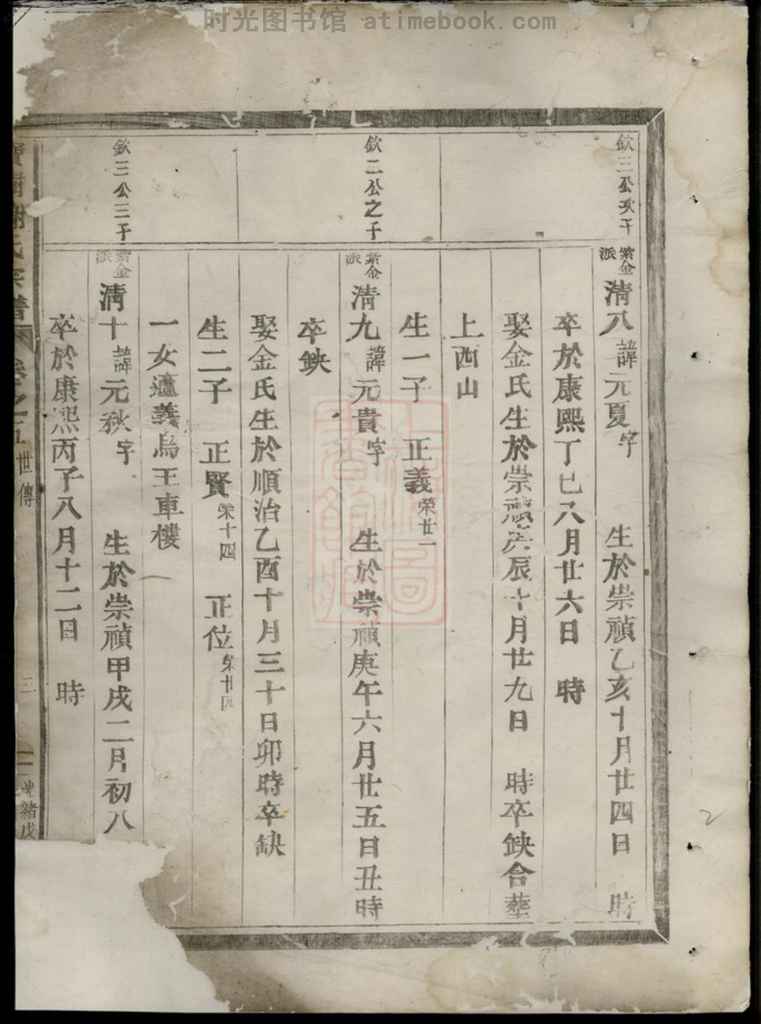 时光图书馆 atimebook.com
欽三公次子
紫金派 清八 諱元夏字 生於崇禎乙亥十月廿四日 時
卒於康熙丁巳八月廿六日 時
娶金氏生於崇禎庚辰十月廿九日 時卒缺合塟
上西山
生一子 正義 榮廿一
欽二公之子
紫金派 清九 諱元貴字 生於崇禎庚午六月廿五日丑時
卒缺
娶金氏生於順治乙酉十月三十日卯時卒缺
生二子 正賢 榮十四 正位 榮廿四
一女適義烏王車樓
欽三公三子
紫金派 清十 諱元秋字 生於崇禎甲戌二月初八
卒於康熙丙子八月十二日 時
謝氏宗譜 卷之五 世傳
三
光緒戊
2